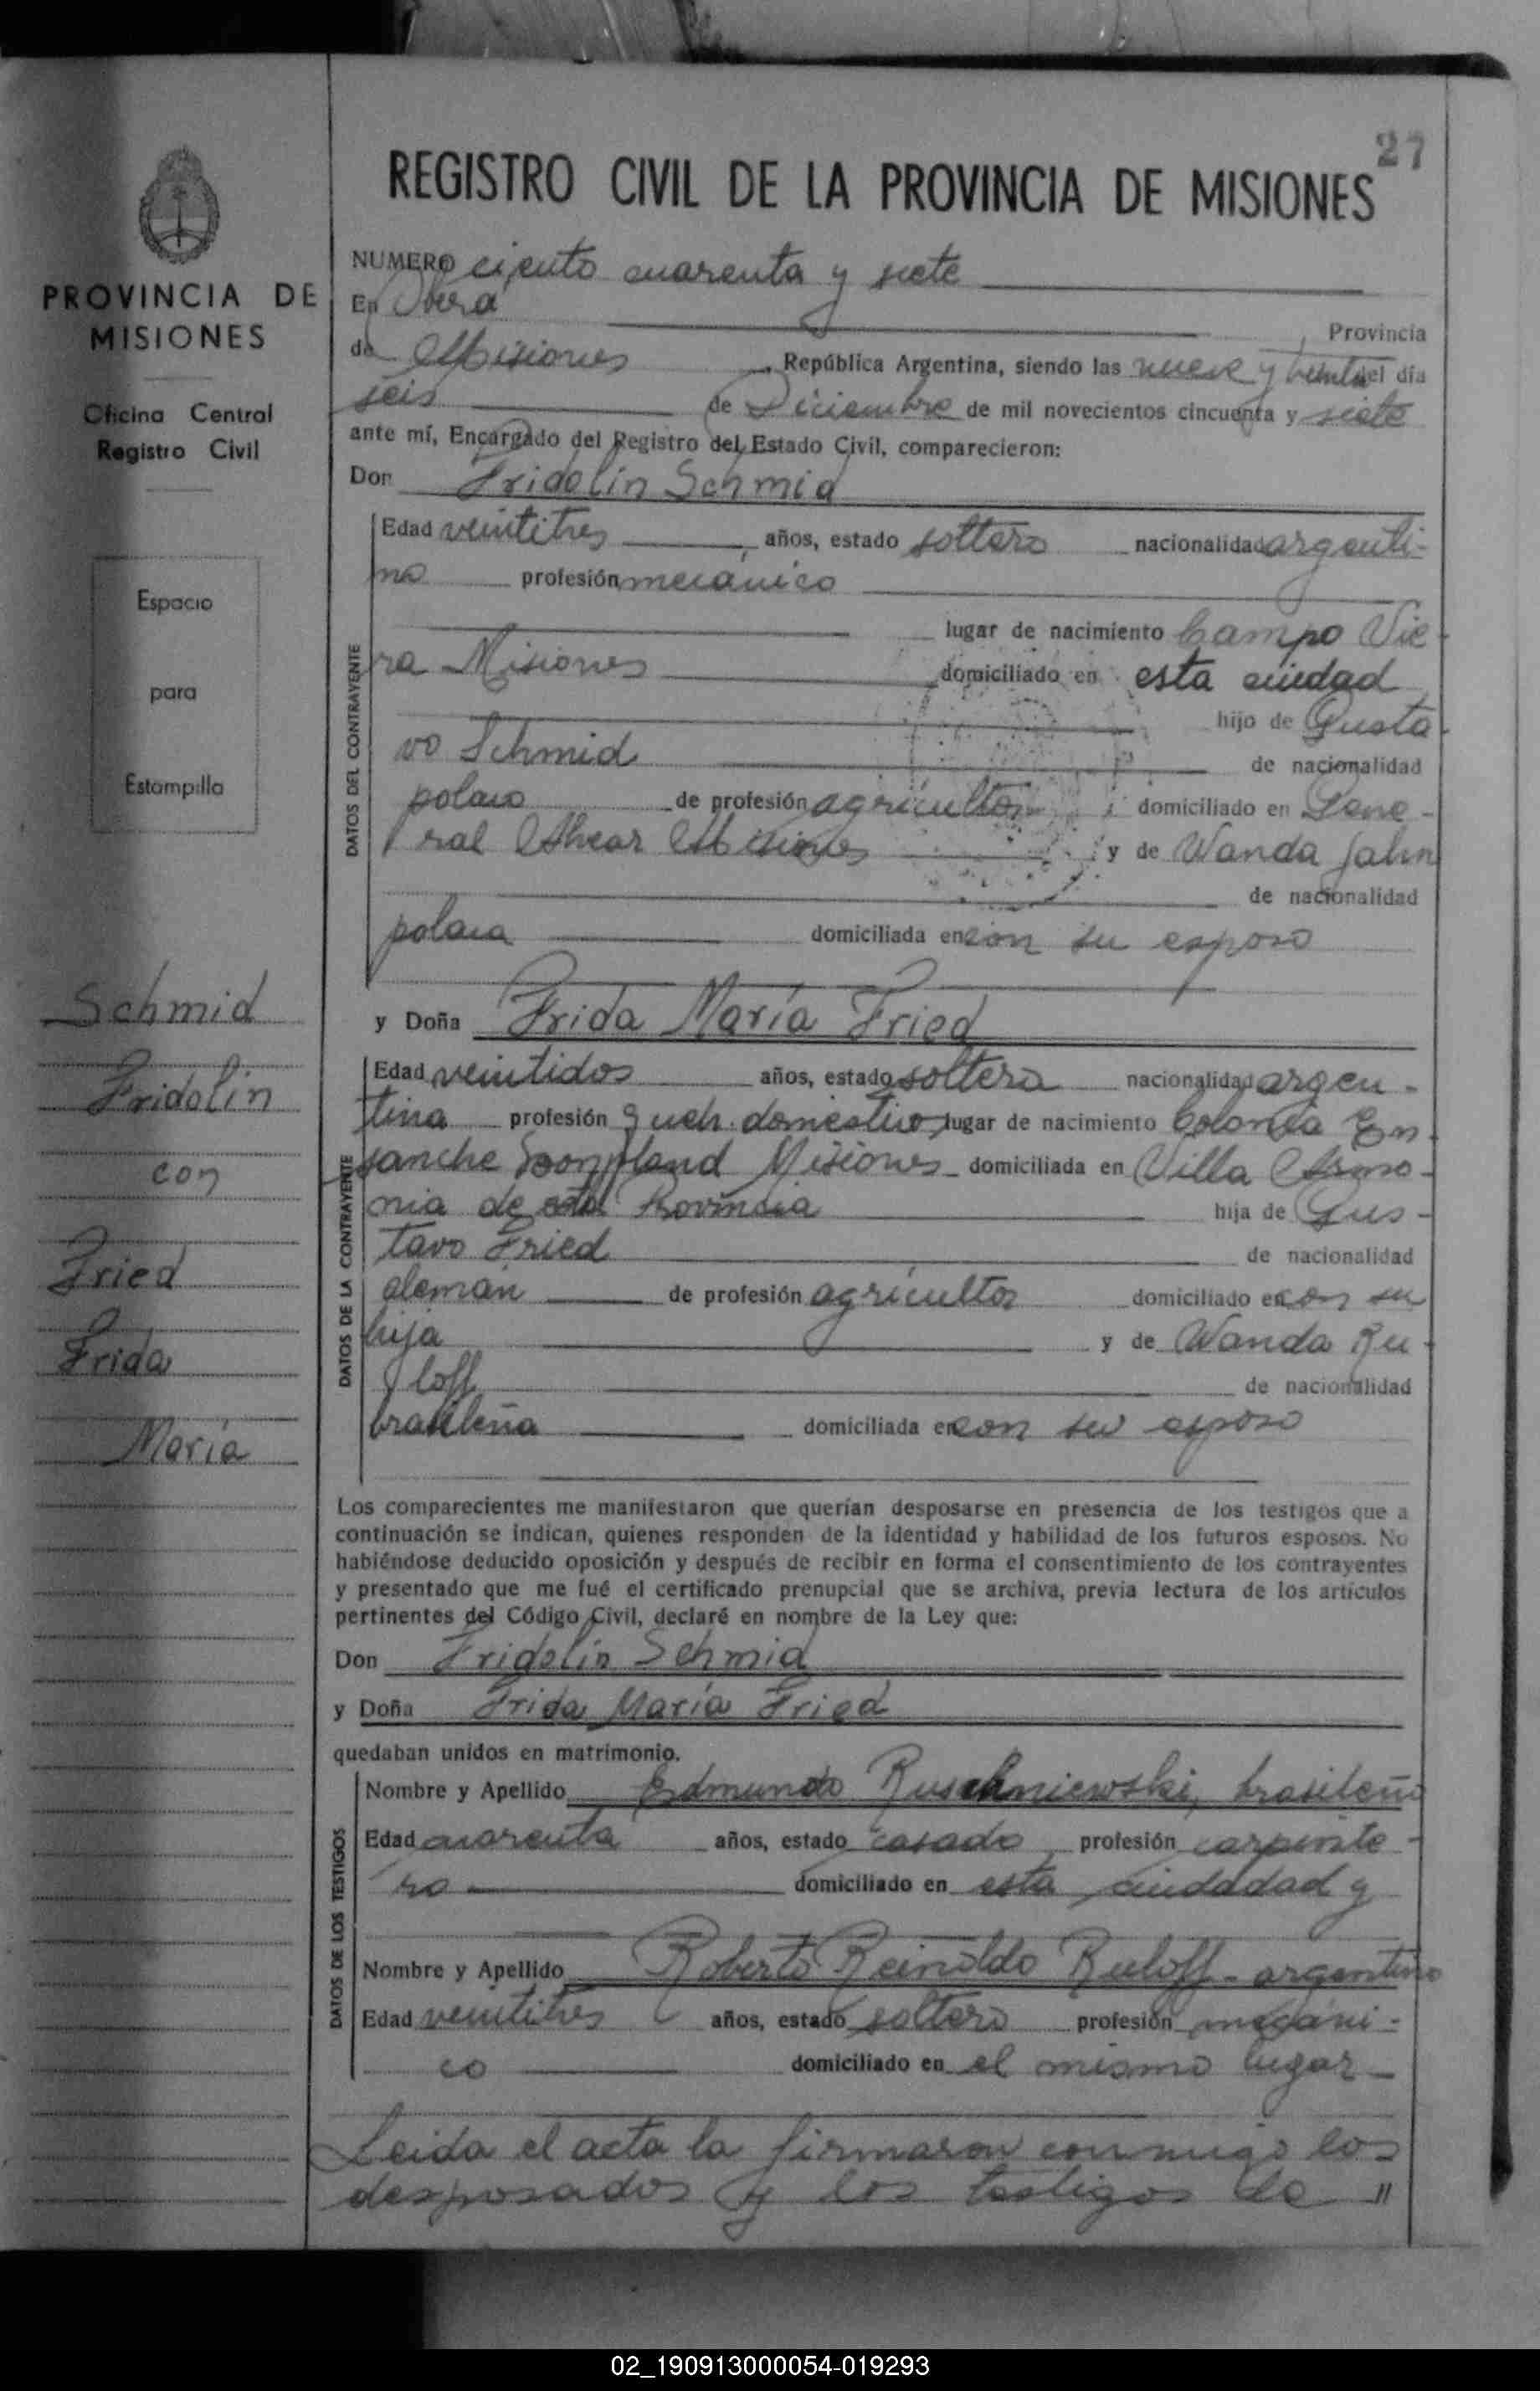 27
REGISTRO CIVIL DE LA PROVINCIA DE MISIONES
PROVINCIA DE
MISIONES
Oficina Central
Registro Civil
Espacio
para
Estampilla
Schmid
Fridolin
con
Fried
Frida
María
NUMERO ciento cuarenta y siete
En Oberá Provincia
de Misiones, República Argentina, siendo las nueve y treinta del día
seis de Diciembre de mil novecientos cincuenta y siete
ante mí, Encargado del Registro del Estado Civil, comparecieron:
Don Fridolin Schmid
DATOS DEL CONTRAYENTE
Edad veintitres, años, estado soltero nacionalidad argenti-
no profesión mecánico
lugar de nacimiento Campo Vie-
ra Misiones domiciliado en esta ciudad
hijo de Gusta-
vo Schmid de nacionalidad
polaco de profesión agricultor domiciliado en Gene-
ral Alvear Misiones y de Wanda Jahn
de nacionalidad
polaca domiciliada en con su esposo
y Doña Frida María Fried
DATOS DE LA CONTRAYENTE
Edad veintidos años, estado soltera nacionalidad argen-
tina profesión Queh. domestico, lugar de nacimiento Colonia En-
sanche Bonpland Misiones domiciliada en Villa Armo-
nia de esta Provincia hija de Gus-
tavo Fried de nacionalidad
alemán de profesión agricultor domiciliado en con su
hija y de Wanda Ru-
loff de nacionalidad
brasileña domiciliada en con su esposo
Los comparecientes me manifestaron que querían desposarse en presencia de los testigos que a
continuación se indican, quienes responden de la identidad y habilidad de los futuros esposos. No
habiéndose deducido oposición y después de recibir en forma el consentimiento de los contrayentes
y presentado que me fué el certificado prenupcial que se archiva, previa lectura de los artículos
pertinentes del Código Civil, declaré en nombre de la Ley que:
Don Fridolin Schmid
y Doña Frida María Fried
quedaban unidos en matrimonio.
DATOS DE LOS TESTIGOS
Nombre y Apellido Edmundo Ruschniewski, brasileño
Edad cuarenta años, estado casado, profesión carpinte-
ro domiciliado en esta ciudadad y
Nombre y Apellido Roberto Reinoldo Ruloff - argentino
Edad veintitres años, estado soltero profesión mecáni-
co domiciliado en el mismo lugar
Leida el acta la firmaron conmigo los
desposados y los testigos de //
02_190913000054-019293